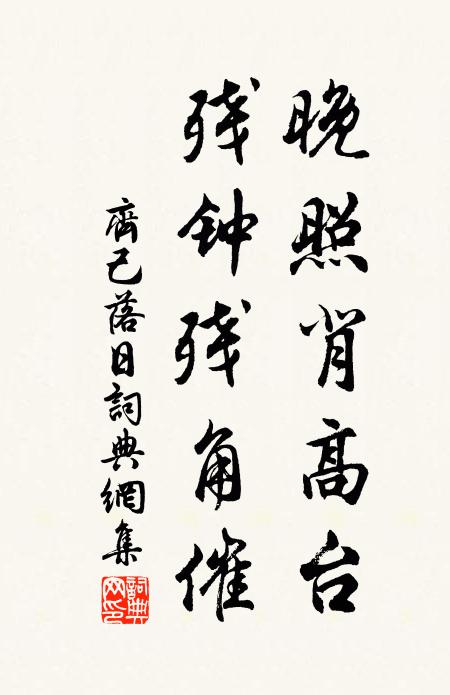 晚照背高台
残钟残角催
齊己落日詞典網集
詞典网印